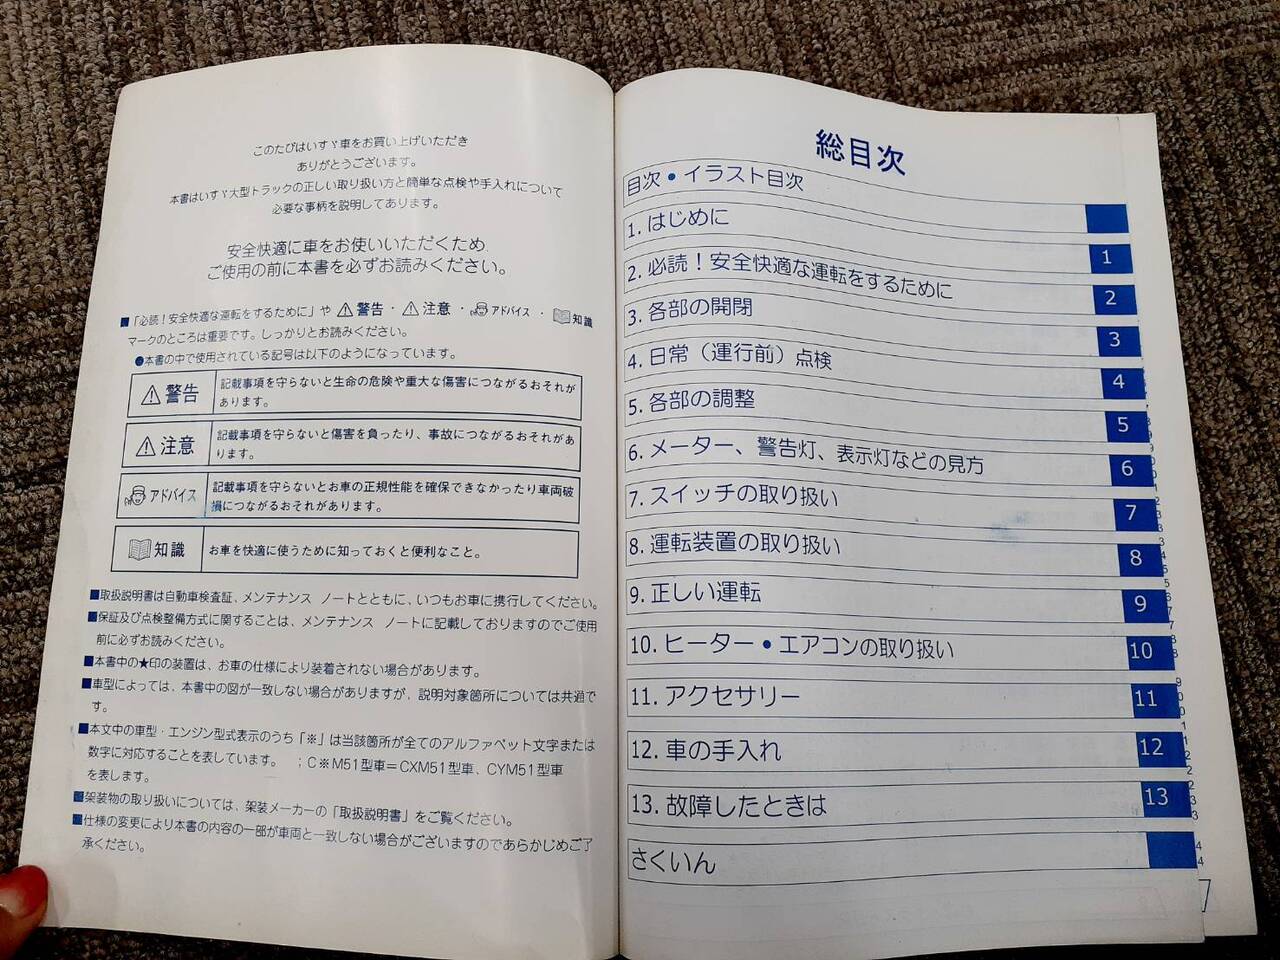 このたびはいすゞ車をお買い上げいただき
ありがとうございます。
本書はいすゞ大型トラックの正しい取り扱い方と簡単な点検や手入れについて
必要な事柄を説明してあります。
安全快適に車をお使いいただくため、
ご使用の前に本書を必ずお読みください。
■「必読！安全快適な運転をするために」や ⚠警告・⚠注意・アドバイス・知識
マークのところは重要です。しっかりとお読みください。
●本書の中で使用されている記号は以下のようになっています。
⚠警告 記載事項を守らないと生命の危険や重大な傷害につながるおそれが
あります。
⚠注意 記載事項を守らないと傷害を負ったり、事故につながるおそれがあ
ります。
アドバイス 記載事項を守らないとお車の正規性能を確保できなかったり車両破
損につながるおそれがあります。
知識 お車を快適に使うために知っておくと便利なこと。
■取扱説明書は自動車検査証、メンテナンス ノートとともに、いつもお車に携行してください。
■保証及び点検整備方式に関することは、メンテナンス ノートに記載しておりますのでご使用
前に必ずお読みください。
■本書中の★印の装置は、お車の仕様により装着されない場合があります。
■車型によっては、本書中の図が一致しない場合がありますが、説明対象箇所については共通で
す。
■本文中の車型・エンジン型式表示のうち「※」は当該箇所が全てのアルファベット文字または
数字に対応することを表しています。 ；C※M51型車＝CXM51型車、CYM51型車
を表します。
■架装物の取り扱いについては、架装メーカーの「取扱説明書」をご覧ください。
■仕様の変更により本書の内容の一部が車両と一致しない場合がございますのであらかじめご了
承ください。
総目次
目次・イラスト目次
1. はじめに 1
2. 必読！安全快適な運転をするために 2
3. 各部の開閉 3
4. 日常（運行前）点検 4
5. 各部の調整 5
6. メーター、警告灯、表示灯などの見方 6
7. スイッチの取り扱い 7
8. 運転装置の取り扱い 8
9. 正しい運転 9
10. ヒーター・エアコンの取り扱い 10
11. アクセサリー 11
12. 車の手入れ 12
13. 故障したときは 13
さくいん